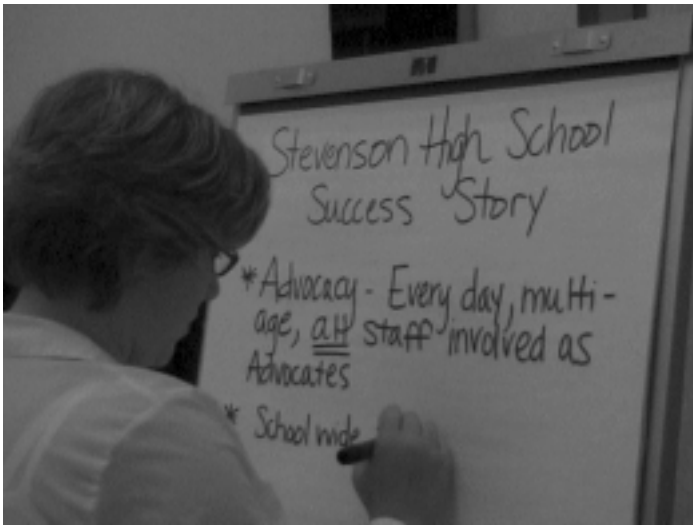 Stevenson High School
Success Story
*Advocacy - Every day, multi-
age, all staff involved as
Advocates
* School wide